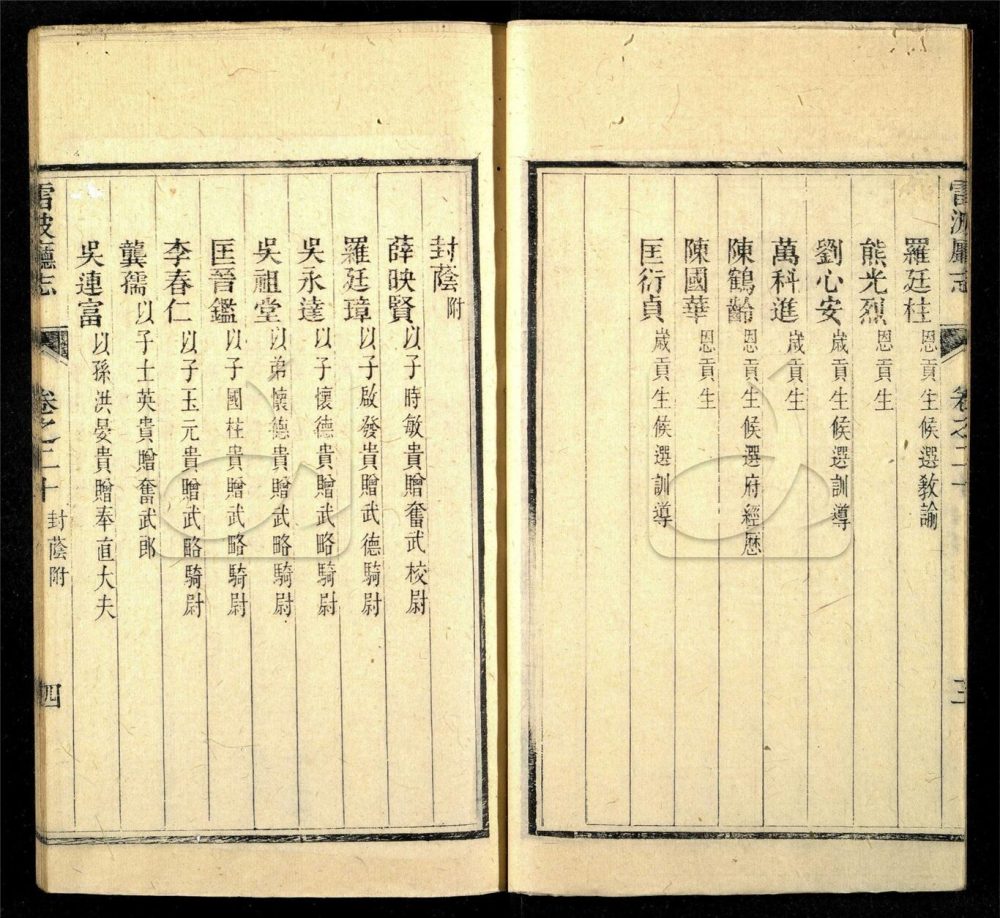 雷波廳志
卷之二十
三
羅廷桂 恩貢生候選教諭
熊光烈 恩貢生
劉心安 歲貢生候選訓導
萬科進 歲貢生
陳鶴齡 恩貢生候選府經歷
陳國華 恩貢生
匡衍貞 歲貢生候選訓導
封蔭附
薛映賢 以子時敏貴贈奮武校尉
羅廷璋 以子啟發貴贈武德騎尉
吳永達 以子懷德貴贈武略騎尉
吳祖堂 以弟懷德貴贈武略騎尉
匡晉鑑 以子國柱貴贈武略騎尉
李春仁 以子玉元貴贈武略騎尉
龔孺 以子士英貴贈奮武郎
吳連富 以孫洪晏貴贈奉直大夫
雷波廳志
卷之二十
封蔭附
四